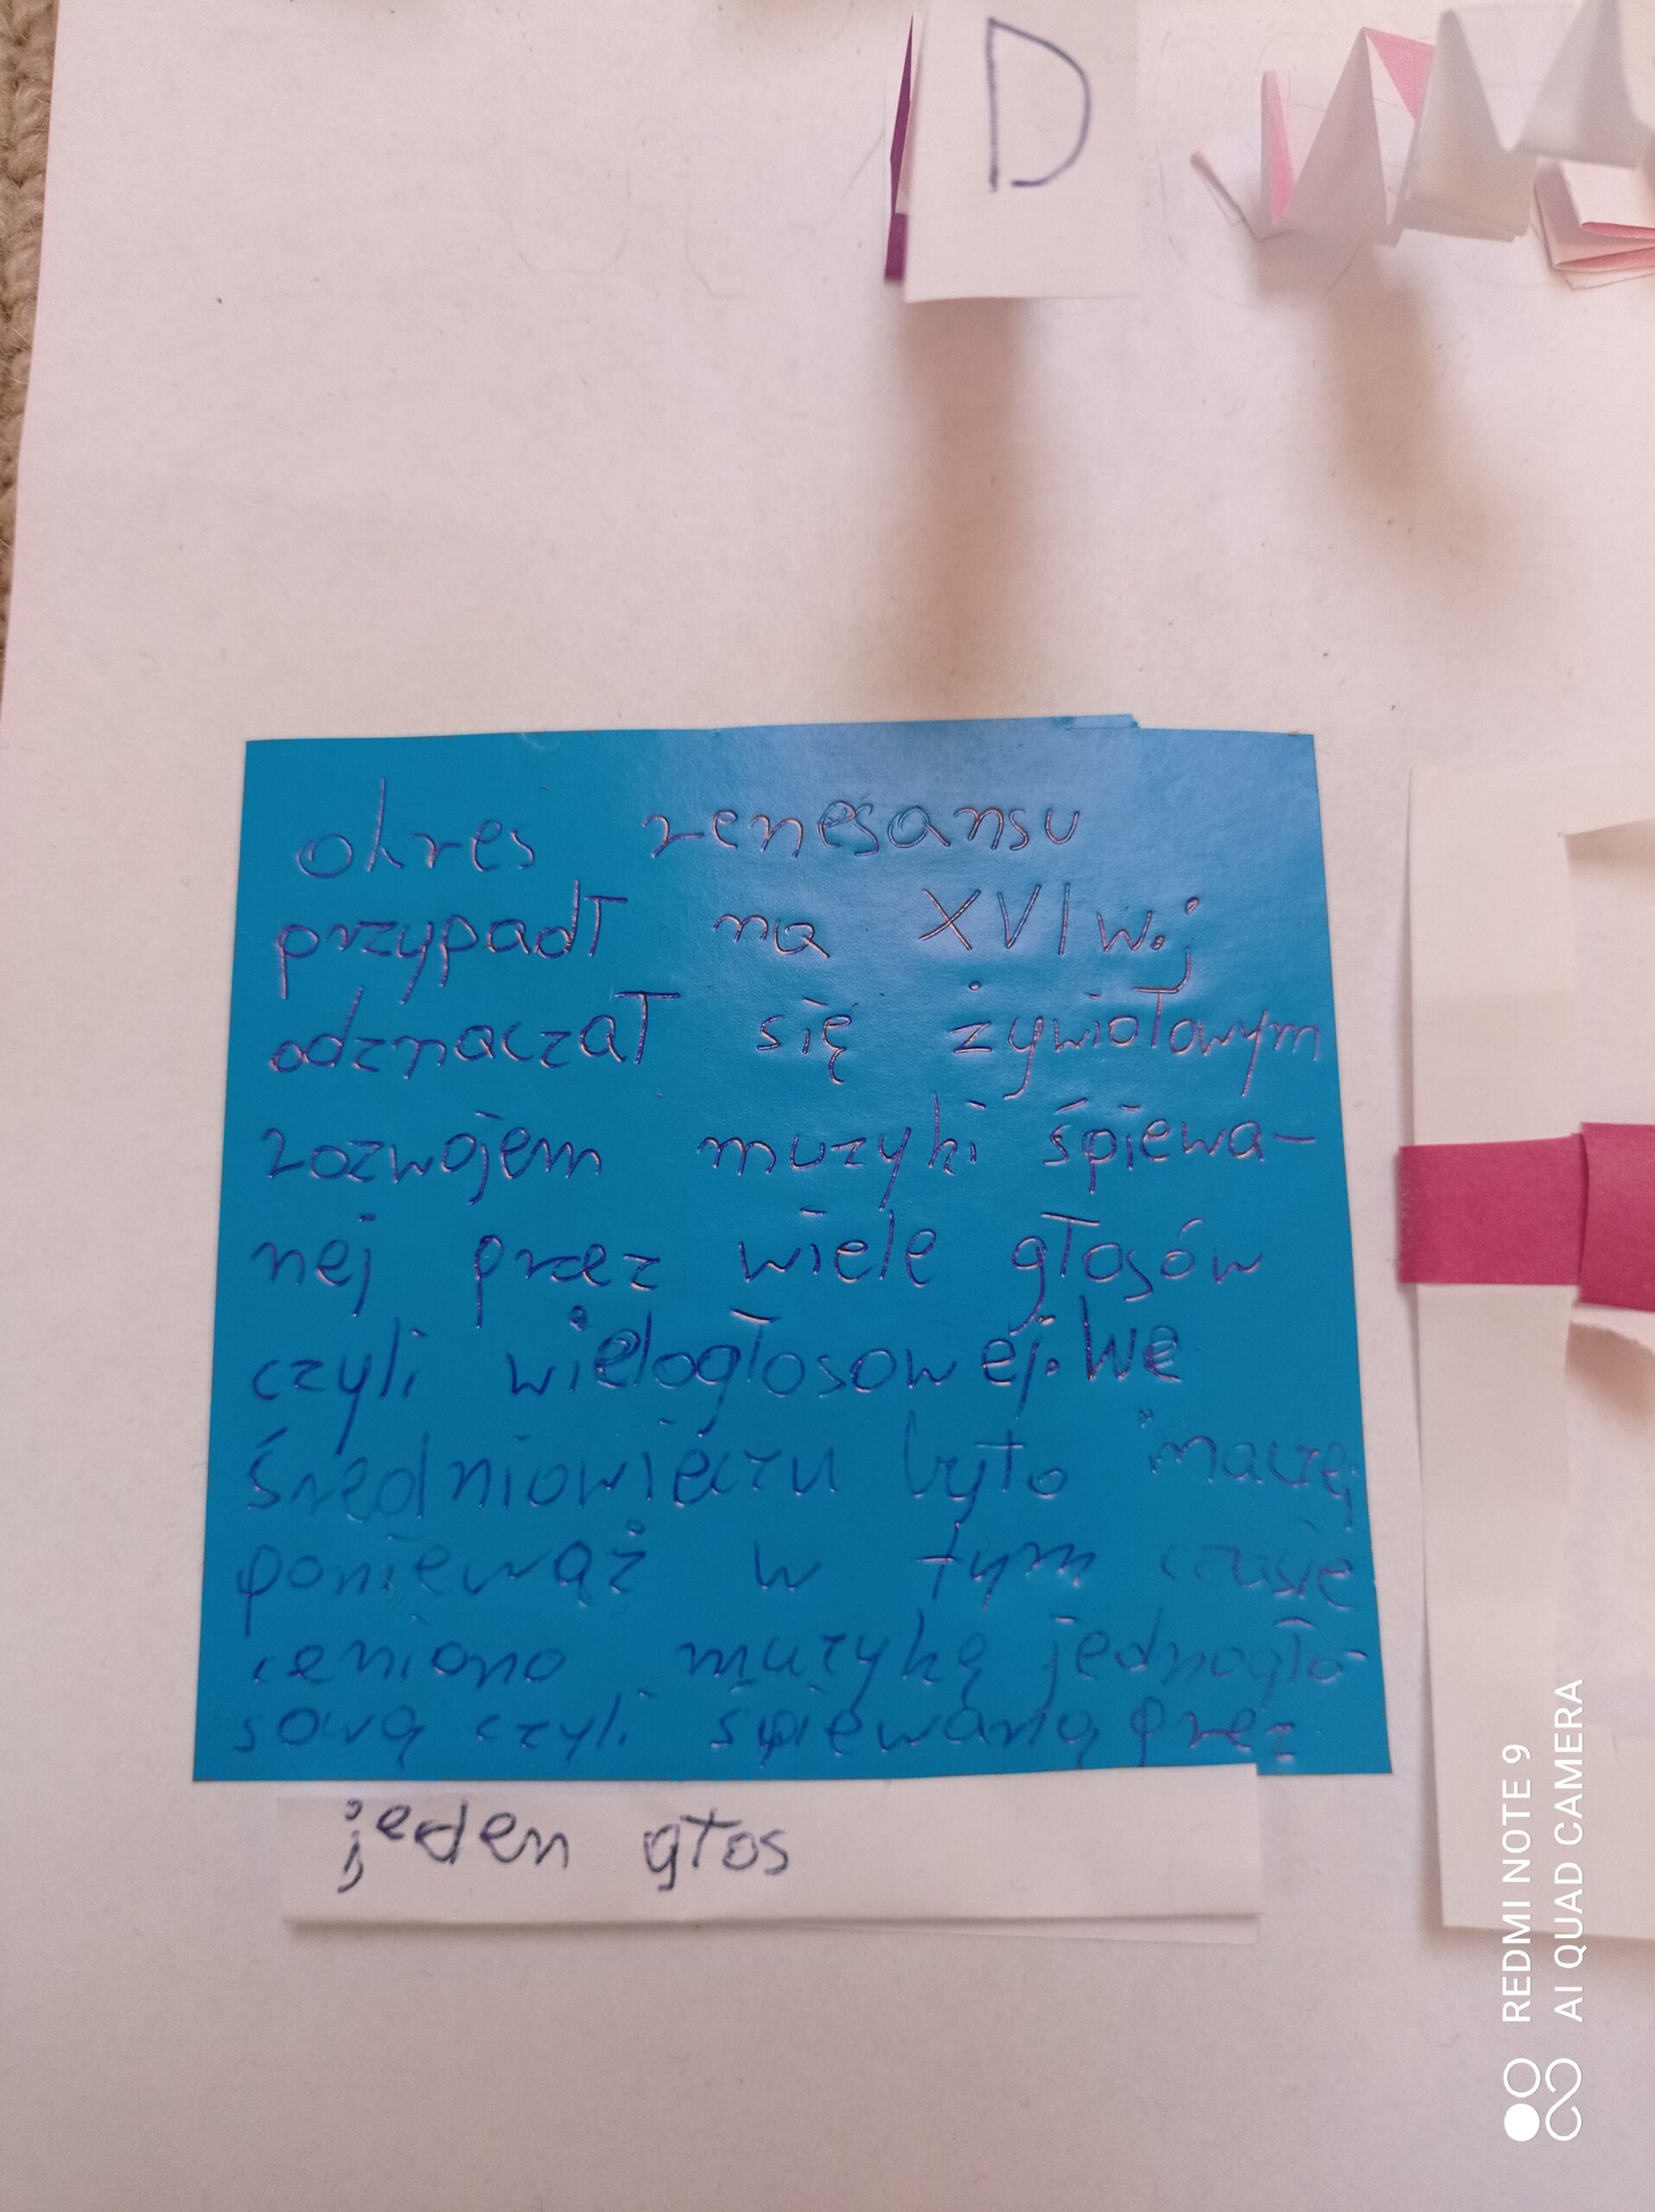 D
okres renesansu
przypadł na XVI w.j
odznaczał się żywiołowym
rozwojem muzyki śpiewa-
nej przez wiele głosów
czyli wielogłosowej. We
średniowieczu było inaczej
ponieważ w tym czasie
ceniono muzykę jednogło-
sową czyli śpiewaną przez
jeden głos
REDMI NOTE 9
AI QUAD CAMERA